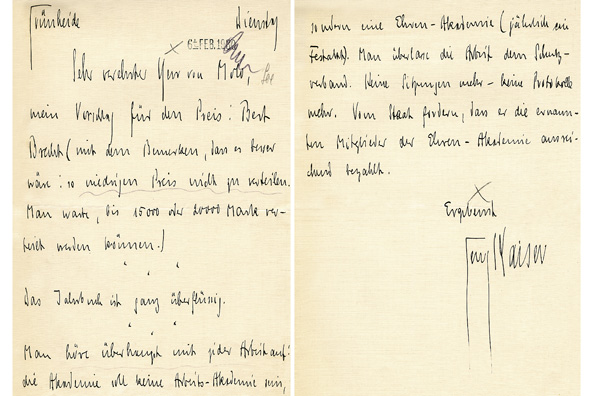 Grünheide Dienstag
6. FEB. 19
Sehr verehrter Herr von Molo,
mein Vorschlag für den Preis: Bert
Brecht (mit dem Bemerken, dass es besser
wäre: so niedrigen Preis nicht zu verteilen.
Man warte, bis 15000 oder 20000 Mark ver-
teilt werden können.)
Das Jahrbuch ist ganz überflüssig.
Man höre überhaupt mit jeder Arbeit auf:
die Akademie soll keine Arbeits-Akademie sein,
sondern eine Ehren-Akademie (jährlich ein
Festakt). Man überlasse die Arbeit dem Schutz-
verband. Keine Sitzungen mehr – keine Protokolle
mehr. Vom Staat fordern, dass er die ernann-
ten Mitglieder der Ehren-Akademie ausrei-
chend bezahlt.
Ergebenst
Georg Kaiser